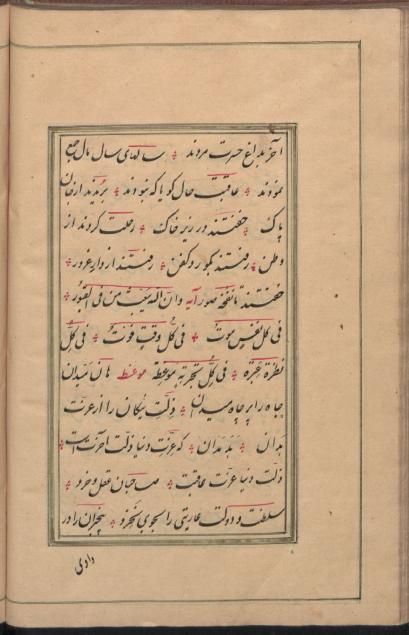 آخر بداغ حسرت مردند ؞ سالهای سال مال جمع
نمودند ؞ عاقبت حال کویا که نبودند ؞ بریدند از جان
پاک ؞ خفتند در زیر خاک ؞ رحلت کردند از
وطن ؞ رفتند بکور و کفن ؞ رفتند از دار غرور ؞
خفتند تا نفخه صور آیه وان الله یبعث من فی القبور ؞
فی کل نفس موت ؞ فی کل وقت فوت ؞ فی کل
نظرة عبرة ؞ فی کل تجربة موعظة موعظه هان
جاه را بر چاه میدان ؞ ذلت نیکان را از عزت
بدان ؞ بد مدان ؞ که عزت دنیا ذلت آخرت است ؞
ذلت دنیا عزت عاقبت ؞ صاحبان عقل و خرد ؞
سلطنت و دولت عاریتی را بجوی نخرد ؞ بیخبران را در
وادی